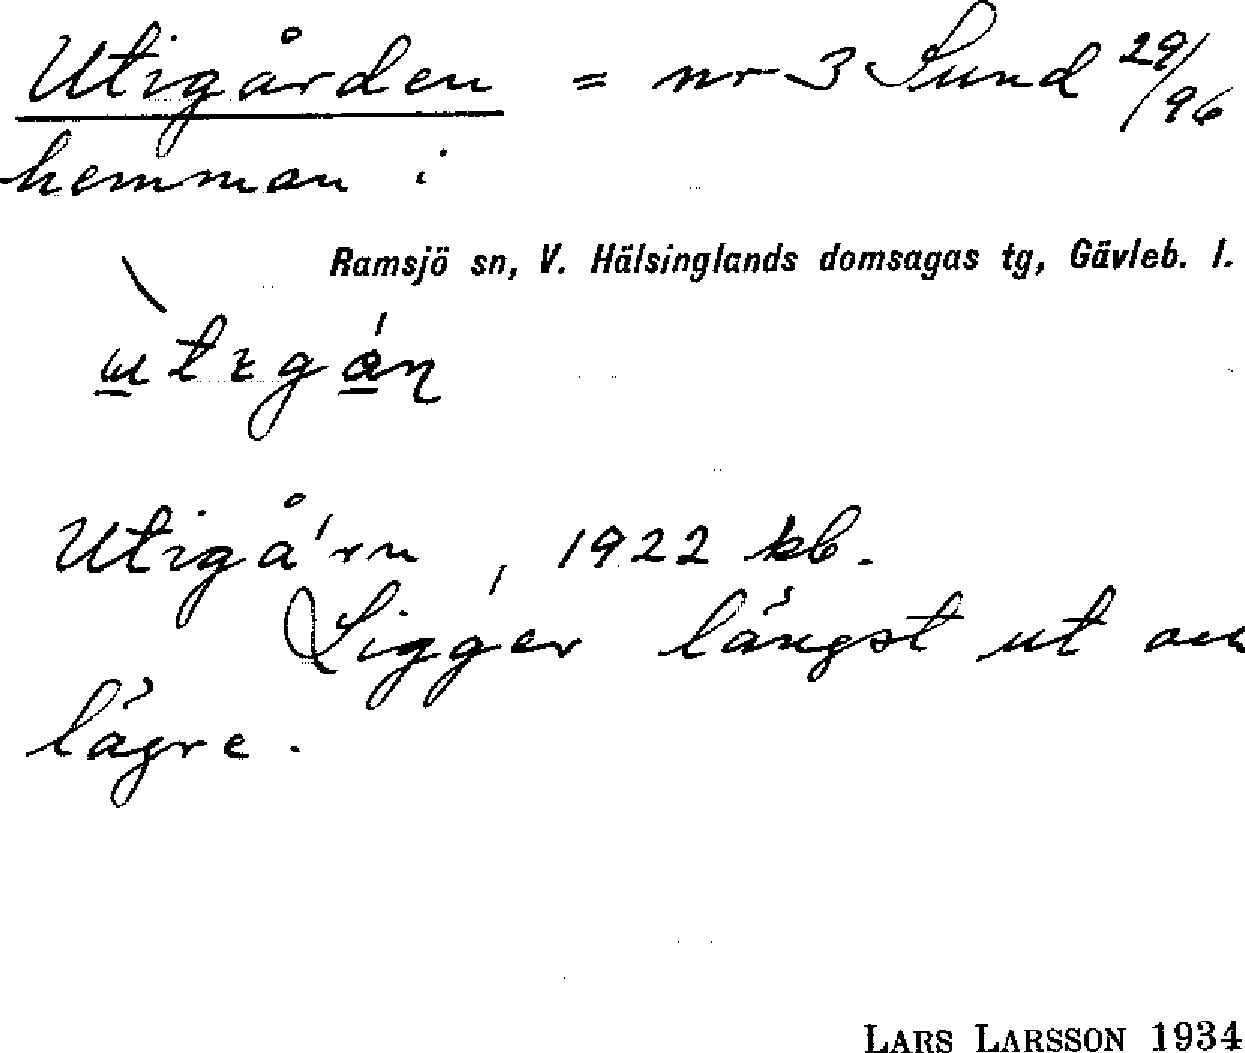 Utigården = nr 3 Sund 29/96
hemman i
Ramsjö sn, V. Hälsinglands domsagas tg, Gävleb. l.
Utigå'rn, 1922 kb.
Ligger längst ut
lägre.
LARS LARSSON 1934